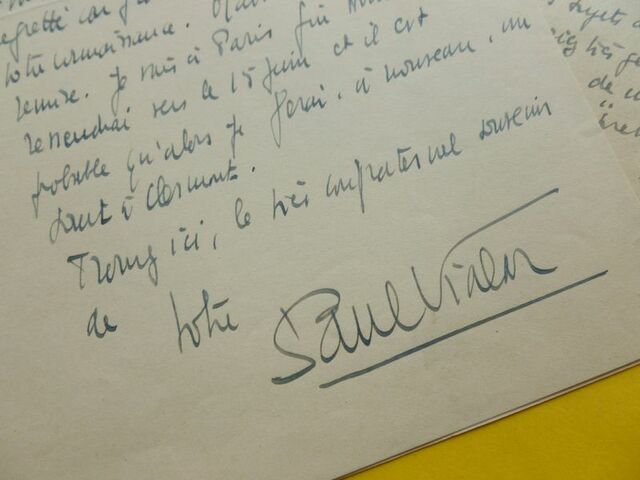 regretté car j'
votre connaissance.
remise. Je suis à Paris fin
reviendrai vers le 15 juin et il est
probable qu'alors je ferai, à nouveau, un
saut à Clermont.
Trouvez ici, le très confraternel souvenir
de votre Paul Vialar
sujets d
très
de